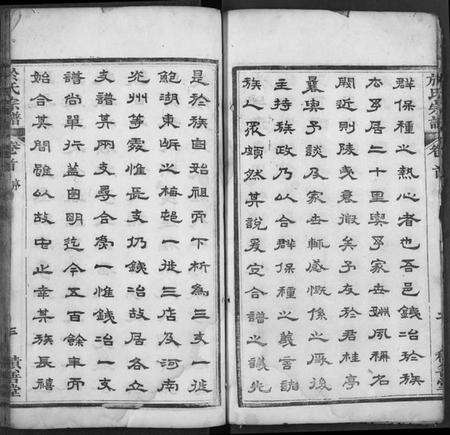 於氏宗譜 卷首
群保種之熱心者也吾邑錢冶於族
去予居二十里與予家世夙稱名
閥近則陵夷衰微矣予友於君桂亭
曩與予談及家世輒感慨係之厥後
主持族政乃以合群保種之義言諸
族人眾頗然其說爰定合譜之議先
是於族自始祖而下析為三支一徙
鮑湖東之梅邨一徙三店及河南
光州等處惟長支仍錢冶故居各立
支譜其兩支尋合為一惟錢冶一支
譜尚單行蓋自明迄今五百餘年而
始合其間雖以故中止幸其族長禧
於氏宗譜 卷首 三 積善堂